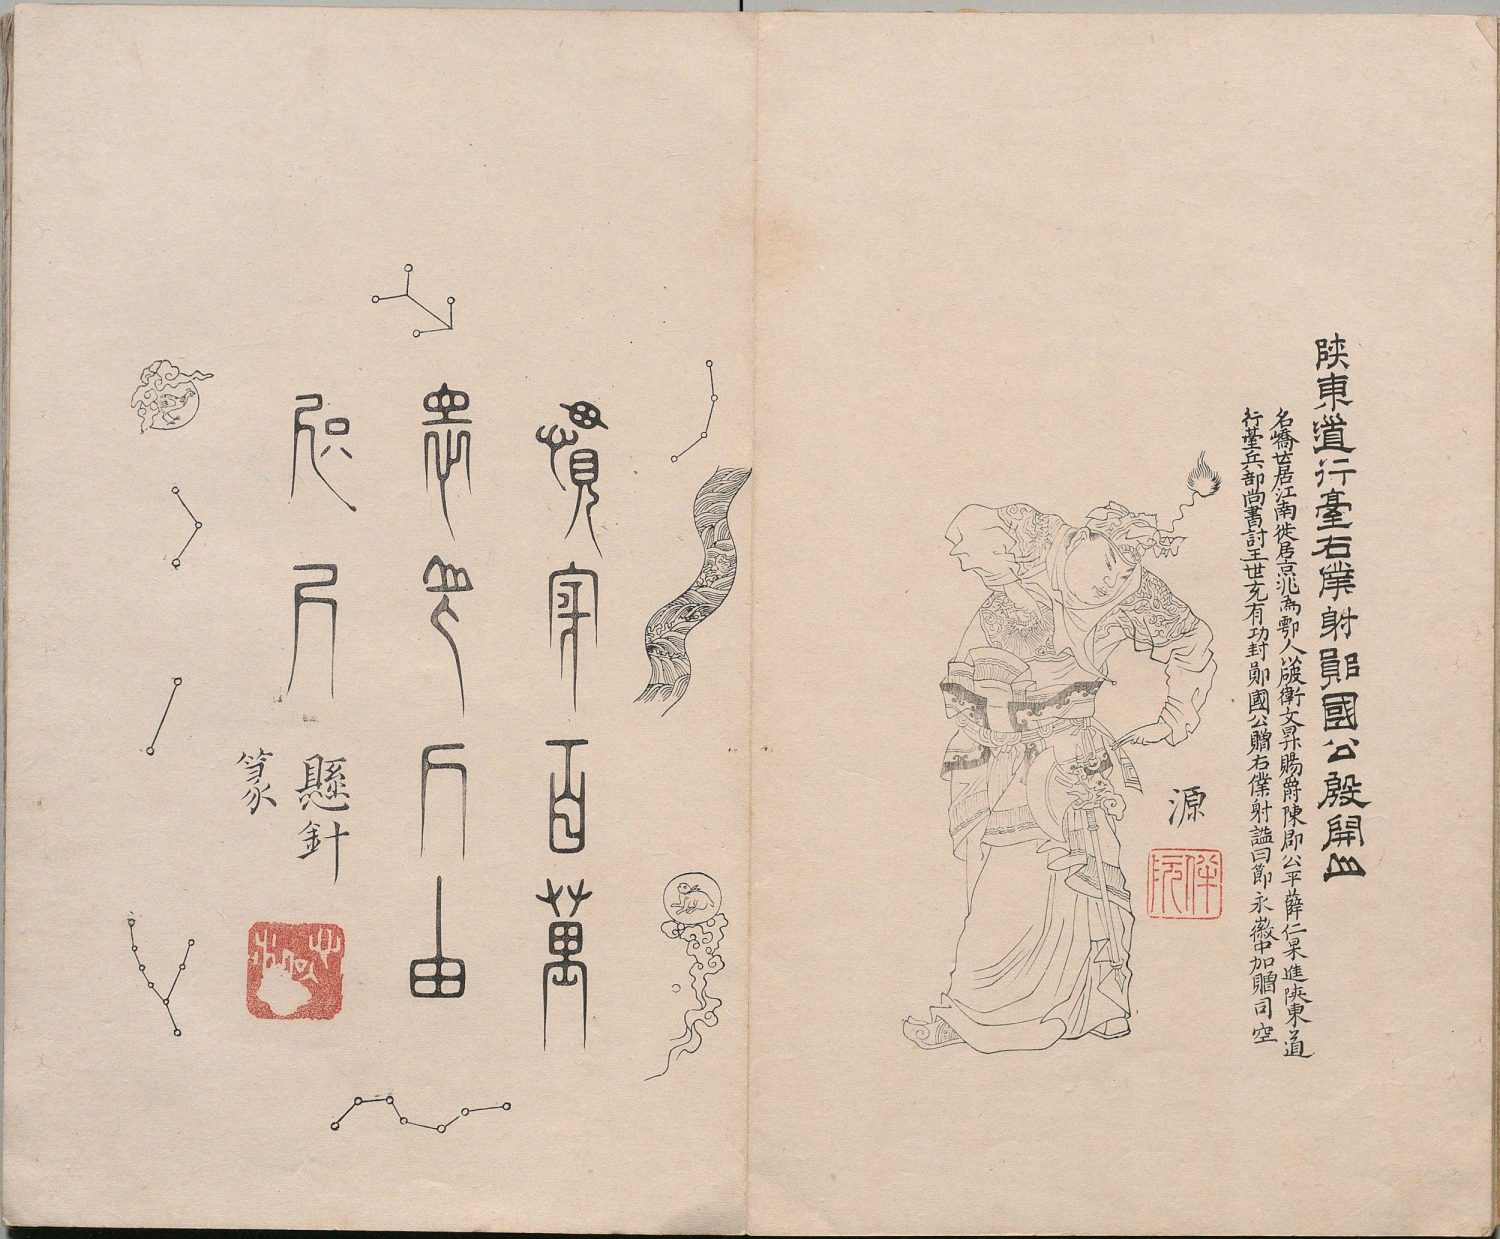 陝東道行臺右僕射鄖國公殷開山
名嶠世居江南徙居京兆為鄠人以破衛文昇賜爵陳郡公平薛仁杲進陝東道
行臺兵部尚書討王世充有功封鄖國公贈右僕射謚曰節永徽中加贈司空
源
伴阮
貫穿百萬
衆出入由
咫尺
懸針
篆